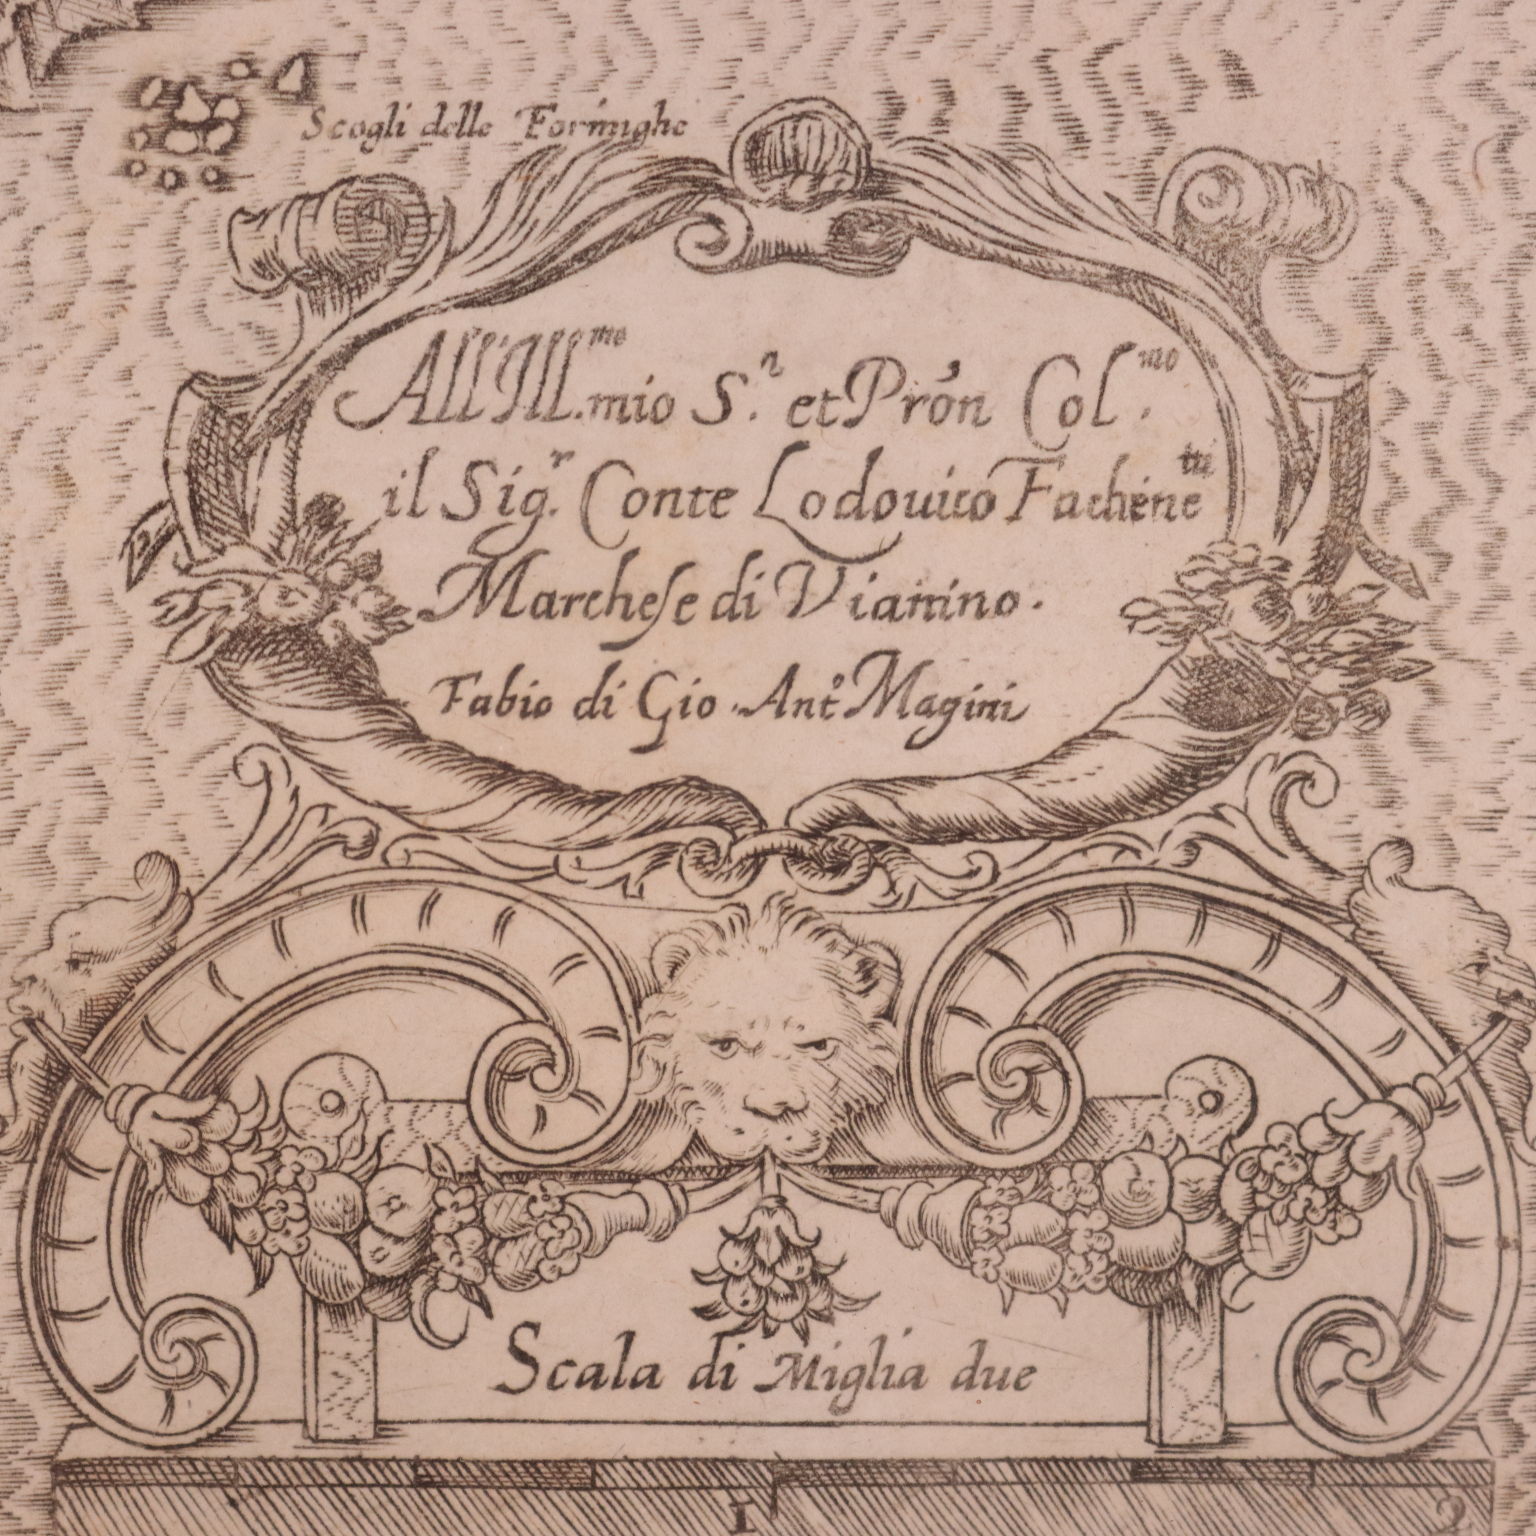 Scogli delle Formighe
All'Ill.mo mio S.r et Prón Col.mo
il Sig.r Conte Lodouico Fachenetti
Marchese di Vianino.
Fabio di Gio. Ant.o Magini
Scala di Miglia due
1 2